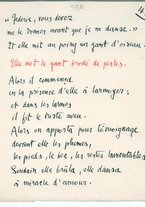 « Jeherie, vous devez
me le donner avant que je ne danse. »
Et elle mit au poing un gant d'oiseau.
Elle met le gant brodé de perles.
Alors il commença
en la présence d'elle à larmoyer ;
et dans les larmes
il fit le triste aveu.
Alors on apporta pour témoignage
devant elle les plumes,
les pieds, le bec, les restes lamentables.
Soudain elle brûla, elle dansa
à miracle d'amour.